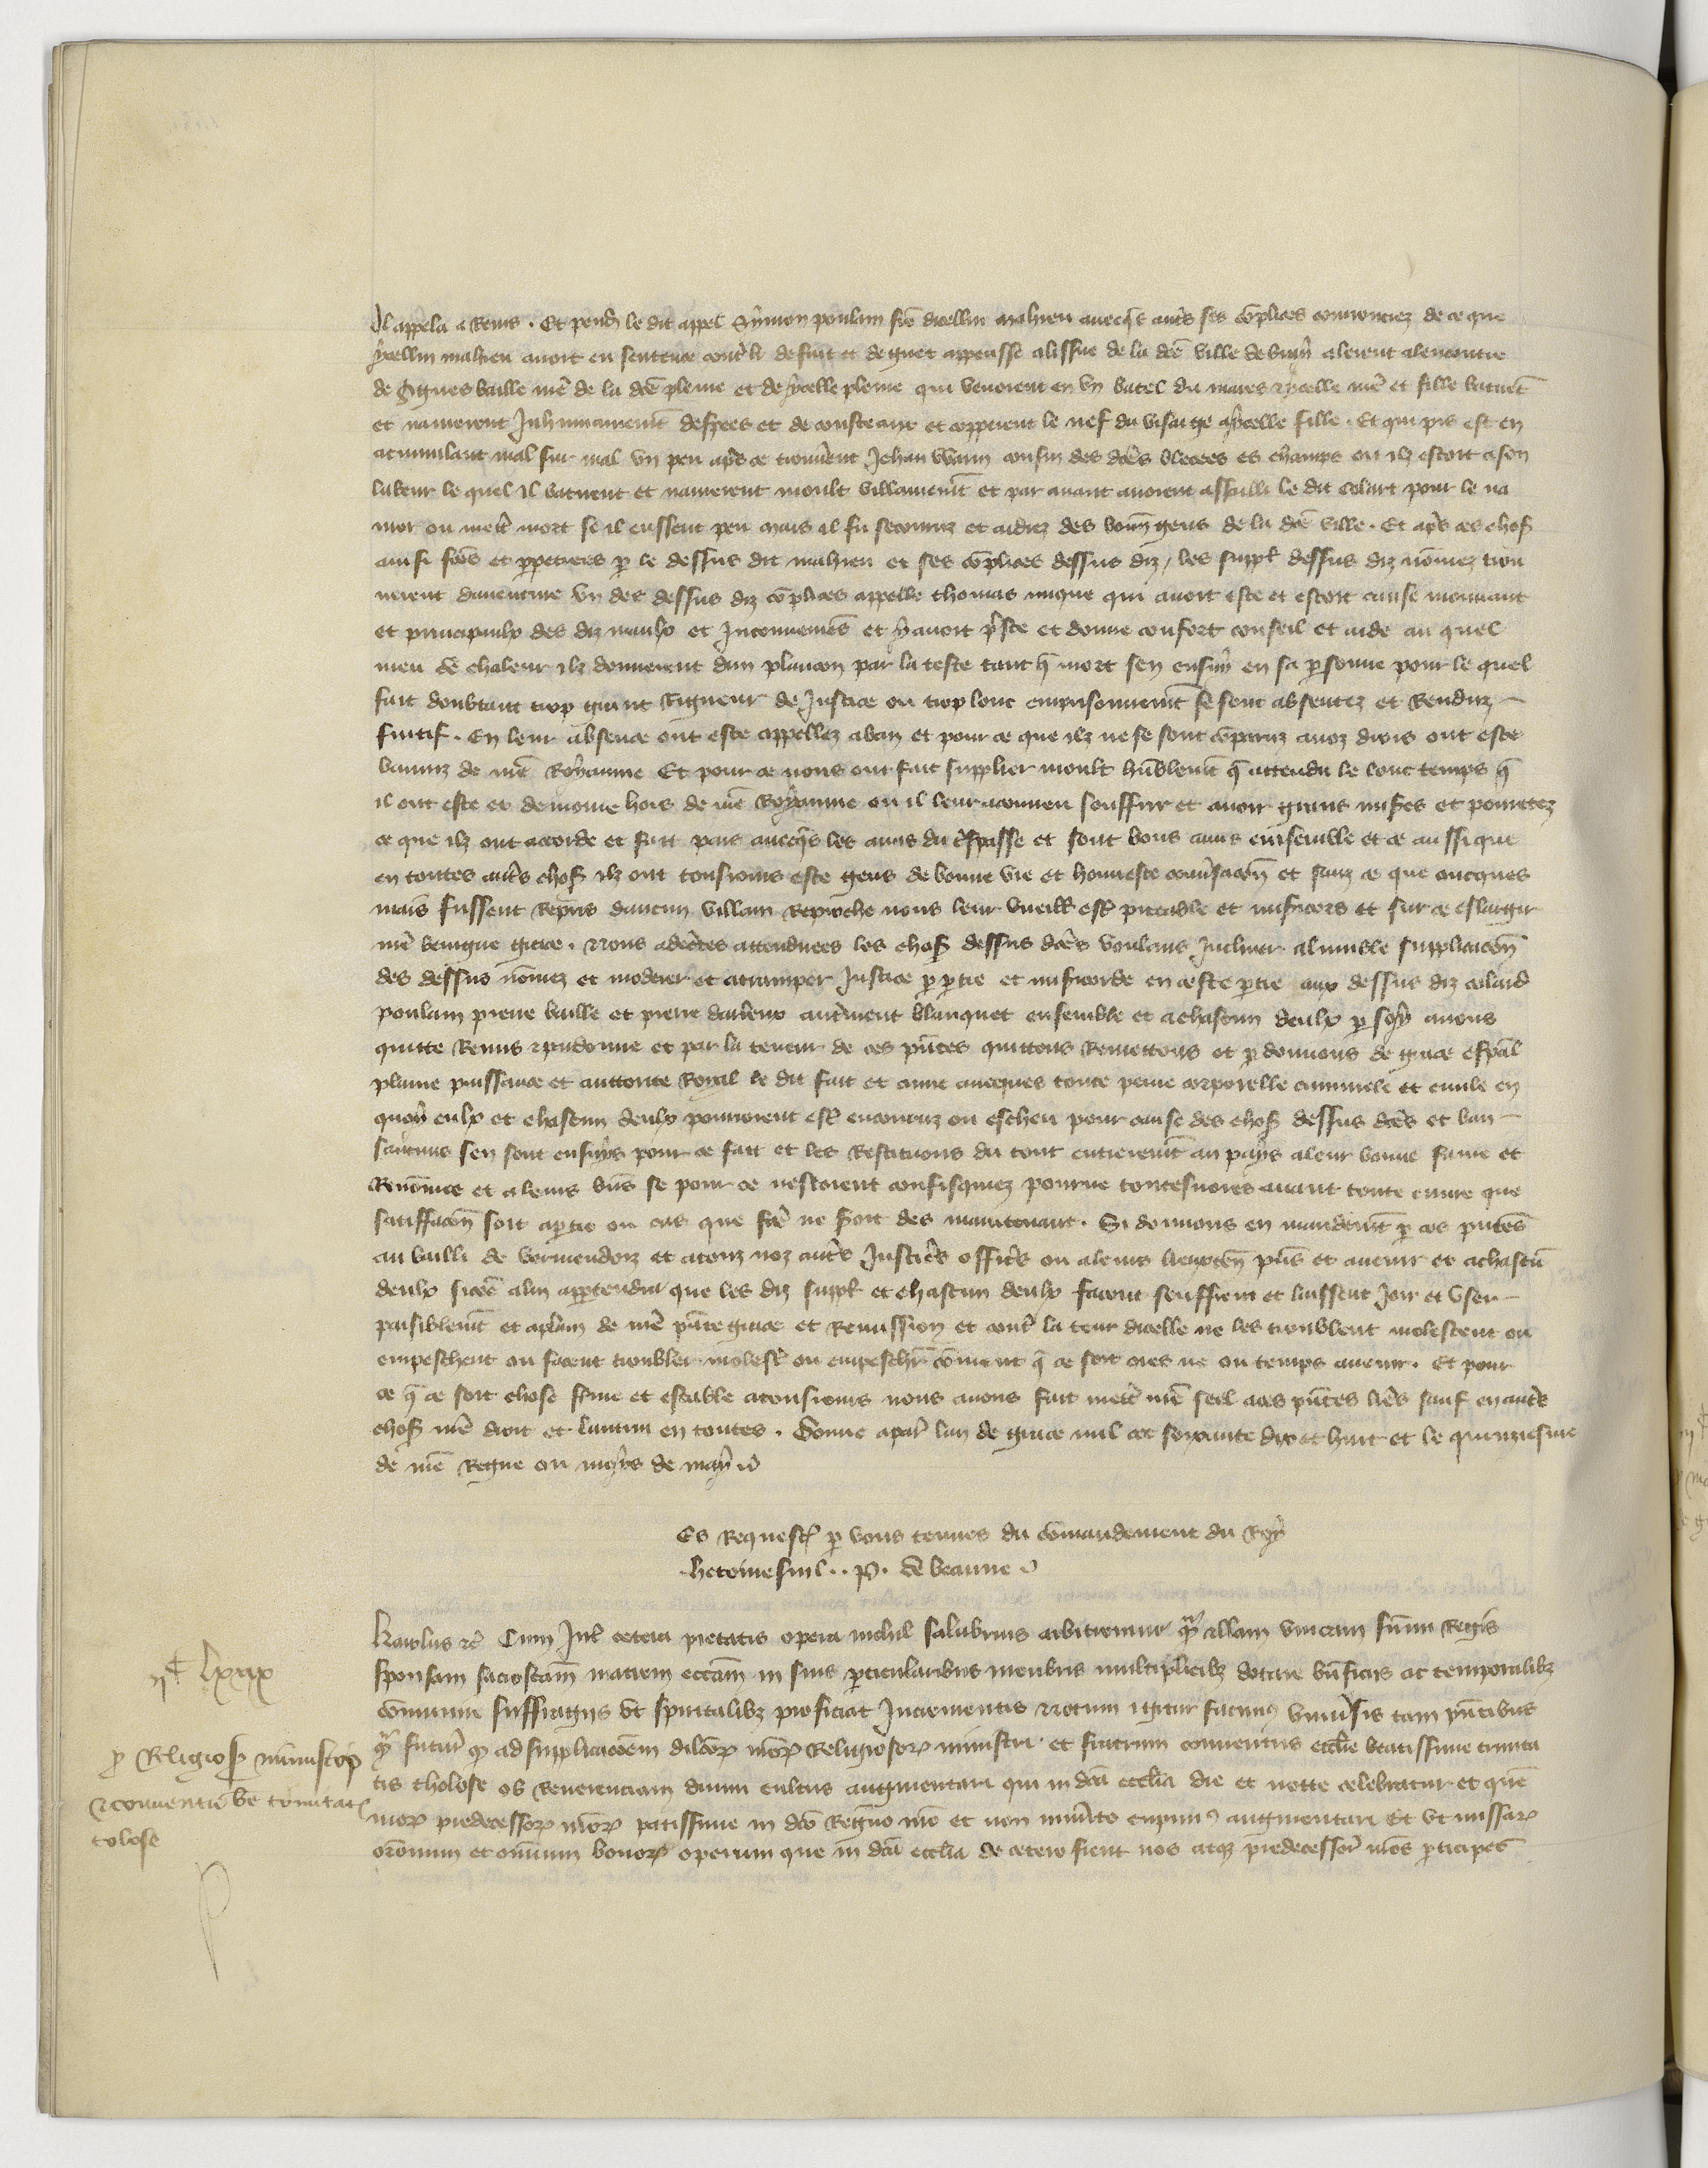 Il appela a Reins . Et pend̄ le dit appel Symon poulain frē dicellui mahieu auecq̄s aut̄s ses cōplices courrouciez de ce que
ycellui mahieu auoit eu sentence contr̄ li de fait et de guet appensse alissue de la dcē ville de alerent alencontre
de Agnes baille mē de la dcē pleine et de ycelle pleine qui venoient en vn batel du mares ycelle mē et fille batirēt
et naurerent Inhumainemēt despees et de cousteaux et copperent le nef du visaige aycelle fille . Et qui pis est en
acumulant mal sur mal vn peu apr̄s ce trouuerent Jehan cousin des dcēs blecees es champs ou ilz estoit a son
labeur le quel il batirent et naurerent moult villainemēt et par auant auoient assailli le dit Colart pour le na
urer ou mettr̄ mort se il eussent peu mais il fu secouruz et aidiez des bōnes gens de la dcē ville . Et apr̄s ces chos̄
ainsi fcēs et ꝑpetrees ꝑ le dessus dit mahieu et ses cōplices dessus diz / les suppl̄ dessus diz nōmez trou
uerent dauenture vn des dessus diz cōplices appelle thomas qui auoit este et estoit cause mouuant
et principaulx des diz maulx et Inconueniēs et y auoit pr̄ste et donne confort conseil et aide au quel
meu de chaleur ilz donnerent dun plancon par la teste tant q̄ mort sen ensuy en sa ꝑsonne pour le quel
fait doubtant trop grant Rigueur de Justice ou trop lonc emprisonnemēt se sont absentez et Renduz
fuitif . En leur absence ont este appellez a ban et pour ce que ilz ne se sont cōparuz a noz drois ont este
baniz de nrē Royaume Et pour ce nous ont fait supplier moult hūblemēt q̄ attendu le lonc temps q̄
il ont este et demoure hors de nrē Royaume ou il leur a conuen souffrir et auoir grans miseres et pouretez
ce que ilz ont accorde et fait pais auecq̄s les amis du trespasse et sont bons amis ensemble et ce aussi que
en toutes aut̄s chos̄ ilz ont tousiours este gens de bonne vie et honneste conuersacōn et sanz ce que oncques
mais fussent Repris daucun villain Reproche nous leur vueill̄ estr̄ piteable et misericors et sur ce eslargir
nrē benigne grace . Nous adecertes attendues les chos̄ dessus dcēs voulans Incliner alumble supplicacōn
des dessus nōmez et moderer et atramper Justice ꝑ ꝑtie et misericorde en ceste ꝑtie aux dessus diz colard
poulain pierre baille et pierre autrement blanquet ensemble et a chascun deulx ꝑ soy auons
quitte Remis ꝑdonne et par la teneur de ces pn̄tes quittons Remettons et ꝑdonnons de grace esp̄al
plaine puissance et auttorite Royal le dit fait et auec auecques toute peine corporelle criminele et ciuile en
quoy eulx et chascun deulx pourroient estr̄ encouruz ou escheu pour cause des chos̄ dessus dcēs et ban
s aucuns sen sont ensuys pour ce fait et les Restituons du tout entieremēt au pays a leur bonne fame et
Renōmee et a leurs biēs se pour ce nestoient confisquiez pourueu toutesuoies auant toute euure que
satiffacōn soit a ꝑtie ou cas que fcē ne seroit des maintenant . Si donnons en mandemēt ꝑ ces pn̄tes
au bailli de vermendoiz et a touz noz aut̄s Justic̄s offic̄s ou a leurs lieuxten̄ pn̄s et auenir et a chascū
deulx si cōe a lui appartendra que les diz suppl̄ et chascun deulx facent seuffrent et laissent Joir et vser
paisiblemēt et a plain de nrē pn̄te grace et Remission et contr̄ la teneur dicelle ne les troublent molestent ou
empeschent ou facent troubler molestr̄ ou empeschr̄ cōment q̄ ce soit ores ne ou temps auenir . Et pour
ce q̄ ce soit chose ferme et estable a tousiours nous auons fait mettr̄ nrē seel a ces pn̄tes lrēs sauf en aut̄s
chos̄ nrē droit et lautrui en toutes . Donne a par̄ lan de grace mil ccc soixante dix et huit et le quinziesme
de nrē Regne ou moys de may
Es Requestes ꝑ vous tenues du cōmandement du Roy
hetomesnil . . p . de beaune
Karolus rc̄ Cum Int̄ cetera pietatis opera nichil salubrius arbitremur qͣm illam vnicam summi Regis
sponsam sacrosc̄am matrem eccl̄iam in suis ꝑticularibus menbris multiplicibꝫ dotare bn̄ficiis ac temporalibꝫ
cōmunire suffragiis vt spūalibꝫ proficiat Incrementis Notum igitur facimꝰ vniūsis tam pn̄tibus
qͣm futur̄ ꝙ ad supplicacōem dilcōꝝ nr̄oꝝ Religiosoꝝ ministri et fratrum conuentus eccl̄ie beatissime trinita
tis tholose ob Reuerenciam diuini cultus augmentari qui in dcā eccl̄ia die et nocte celebratur et quē
moꝝ predecessoꝝ nr̄oꝝ in dcō Regno nr̄o et non inmerito cupimꝰ augmentari Et vt missaꝝ
orōnum et om̄ium bonoꝝ operum que in dcā eccl̄ia de cetero fient nos atqꝫ predecessor̄ nr̄os ꝑticipes
ijᶜ lxxix
ꝓ Religios̄ ministro
et conuentu be trinitat̄
tolose